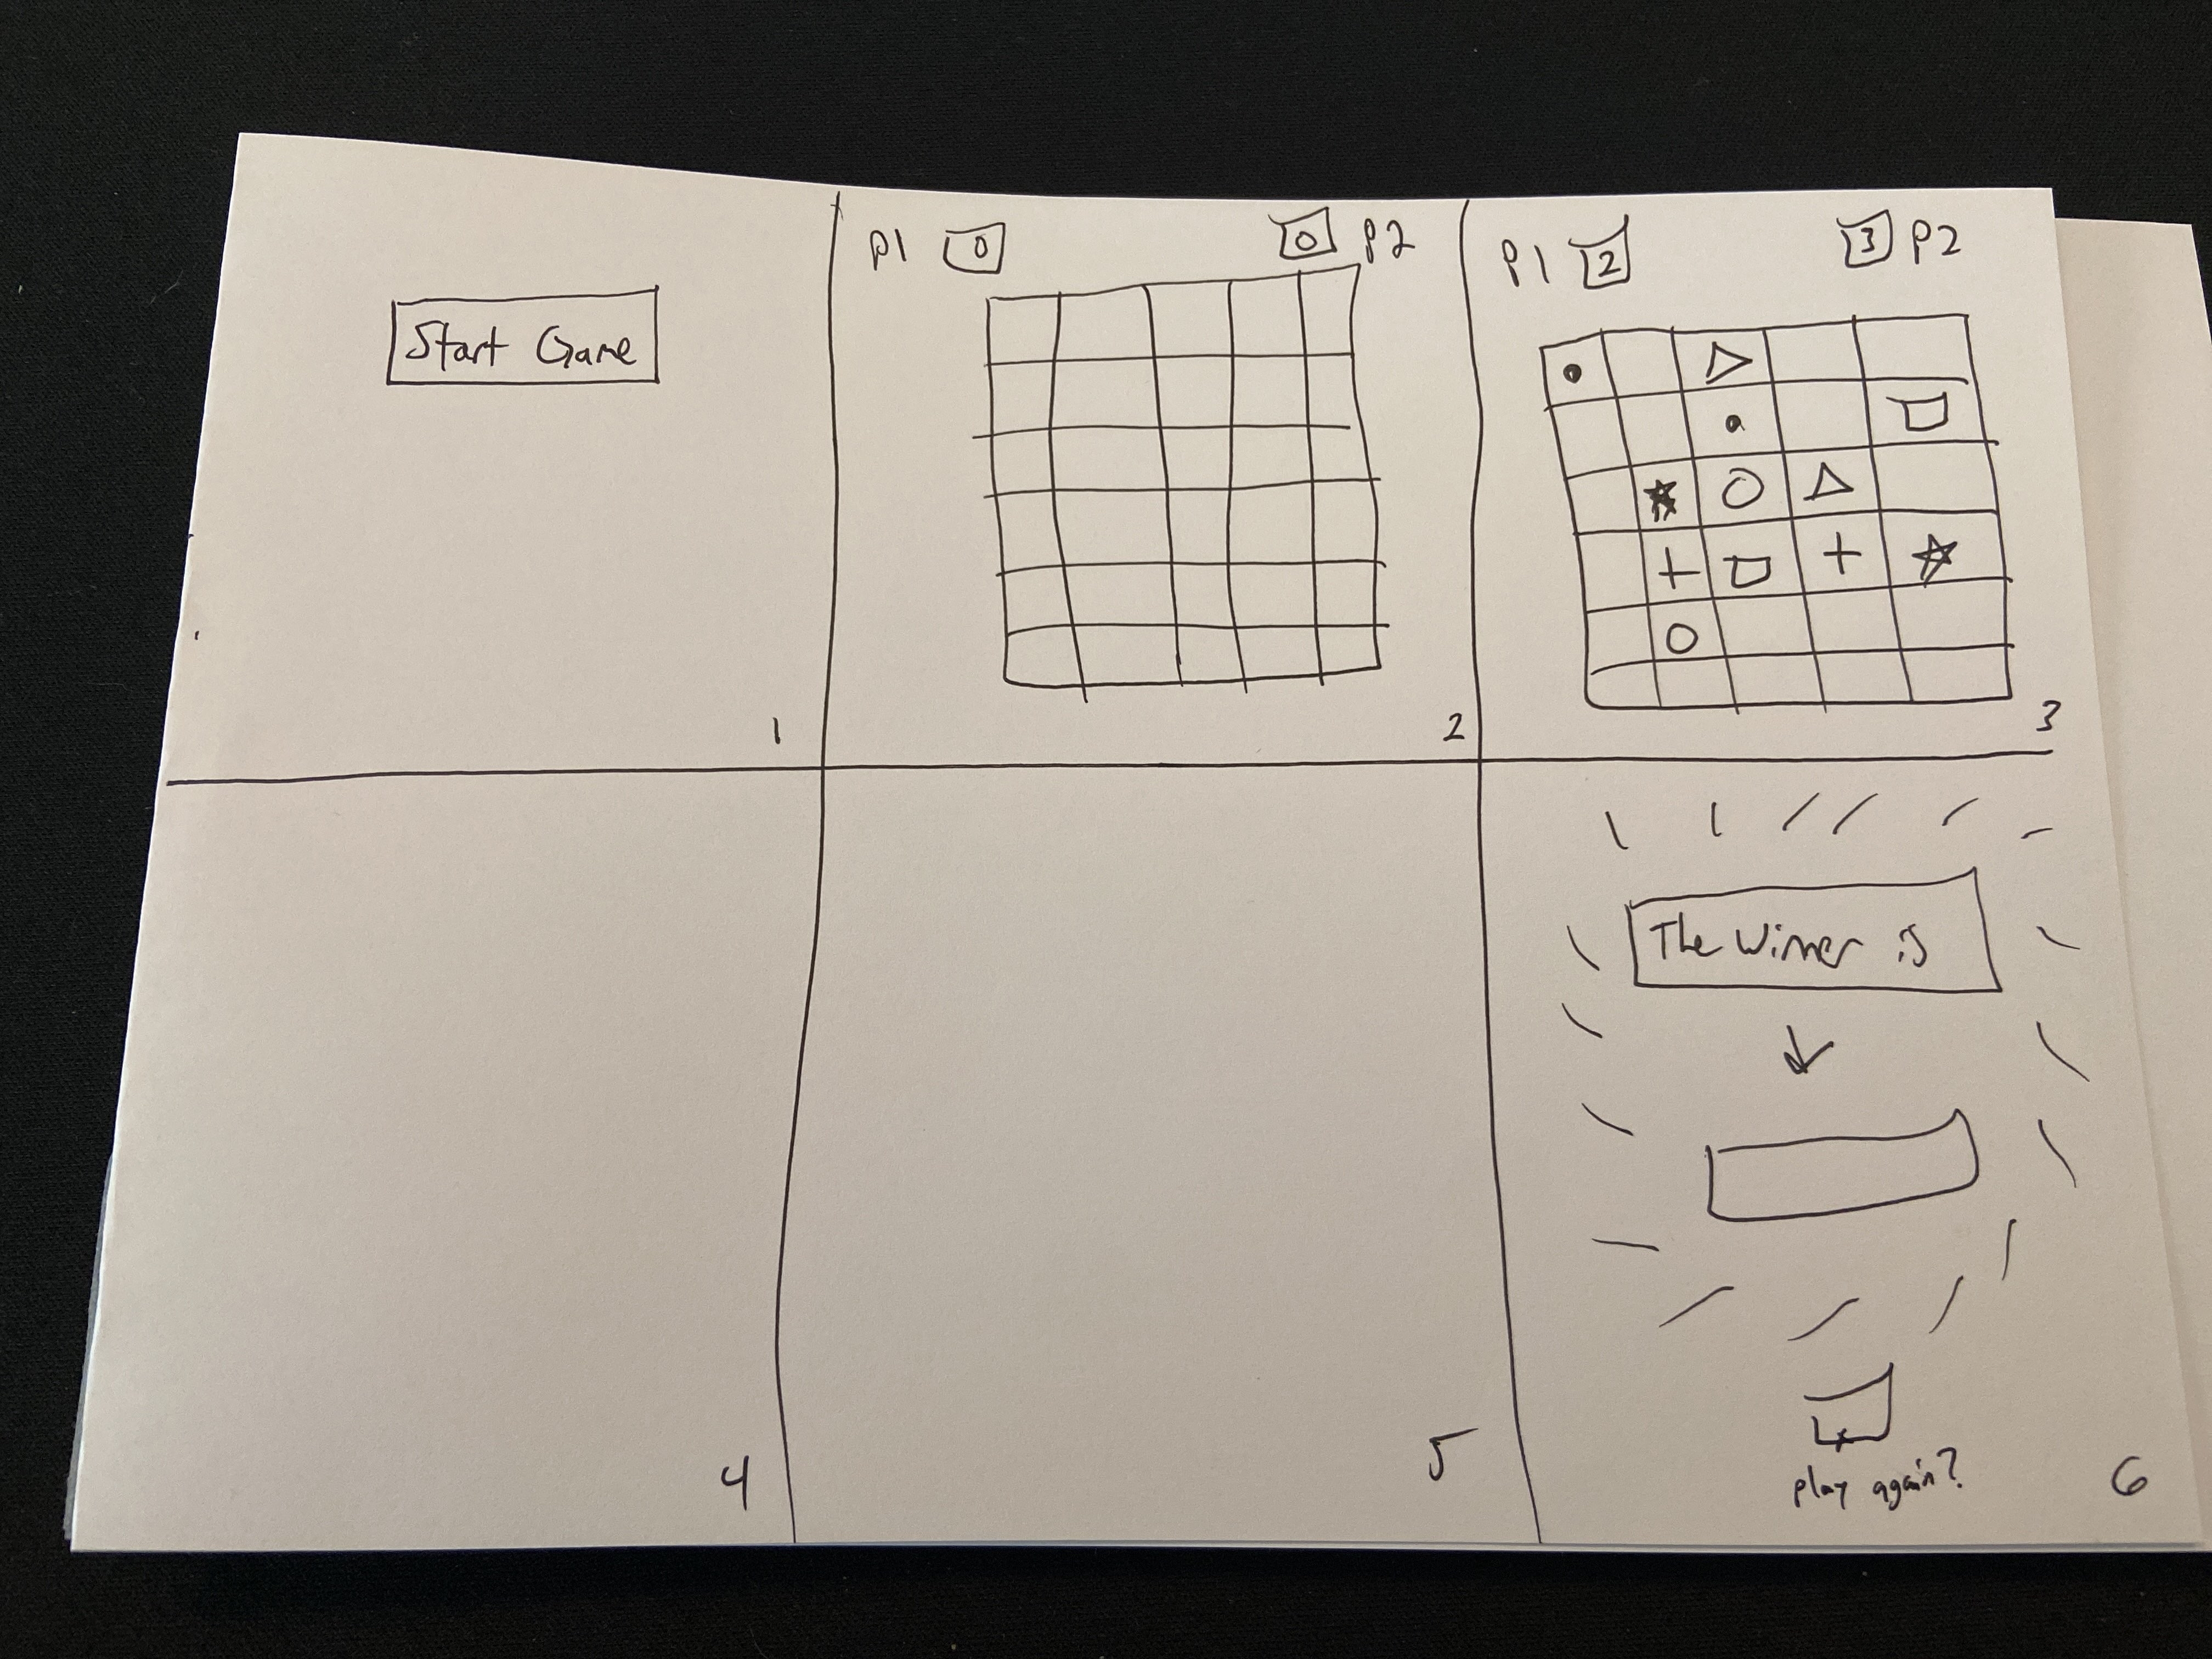 Start Game
1
P1 0 0 P2
2
P1 2 3 P2
3
4
5
The Winner is
play again?
6